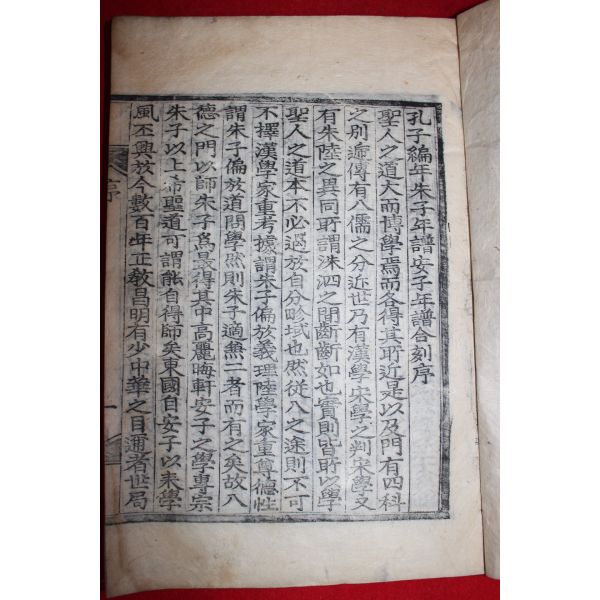 孔子編年朱子年譜安子年譜合刻序
聖人之道大而博學焉而各得其所近是以及門有四科
之别遞傳有八儒之分近世乃有漢學宋學之判宋學又
有朱陸之異同所謂洙泗之間斷斷如也實則皆所以學
聖人之道本不必過於自分畛域也然從入之途則不可
不擇漢學家重考據謂朱子偏於義理陸學家重尊德性
謂朱子偏於道問學然則朱子適無二者而有之矣故入
德之門以師朱子爲最得其中高麗晦軒安子之學專宗
朱子以上希聖道可謂能自得師矣東國自安子以來學
風丕興於今數百年正敎昌明有少中華之目邇者世局
序
一